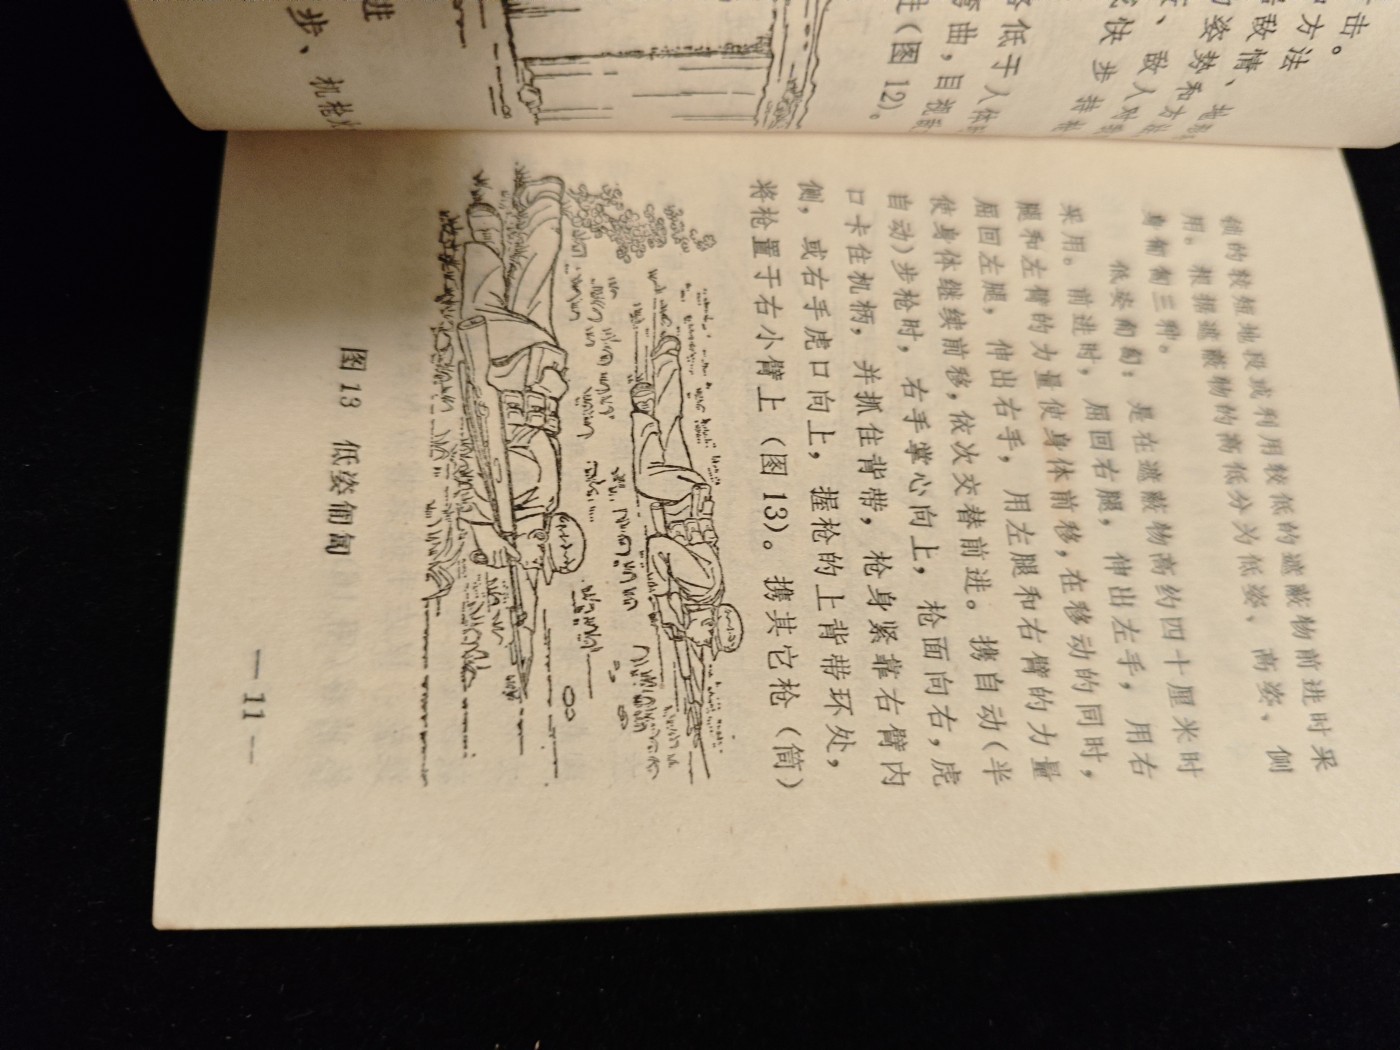 击。
方法
敌情、地
姿势和方
、敌人对
快步持
低于人体
弯曲,目视
进(图12)。
进
步、机枪
锁的较短地段或利用较低的遮蔽物前进时采
用。根据遮蔽物的高低分为低姿、高姿、侧
身匍匐三种。
低姿匍匐:是在遮蔽物高约四十厘米时
采用。前进时,屈回右腿,伸出左手,用右
腿和左臂的力量使身体前移,在移动的同时,
屈回左腿,伸出右手,用左腿和右臂的力量
使身体继续前移,依次交替前进。携自动(半
自动)步枪时,右手掌心向上,枪面向右,虎
口卡住机柄,并抓住背带,枪身紧靠右臂内
侧,或右手虎口向上,握枪的上背带环处,
将枪置于右小臂上(图13)。携其它枪(筒)
图13 低姿匍匐
— 11 —